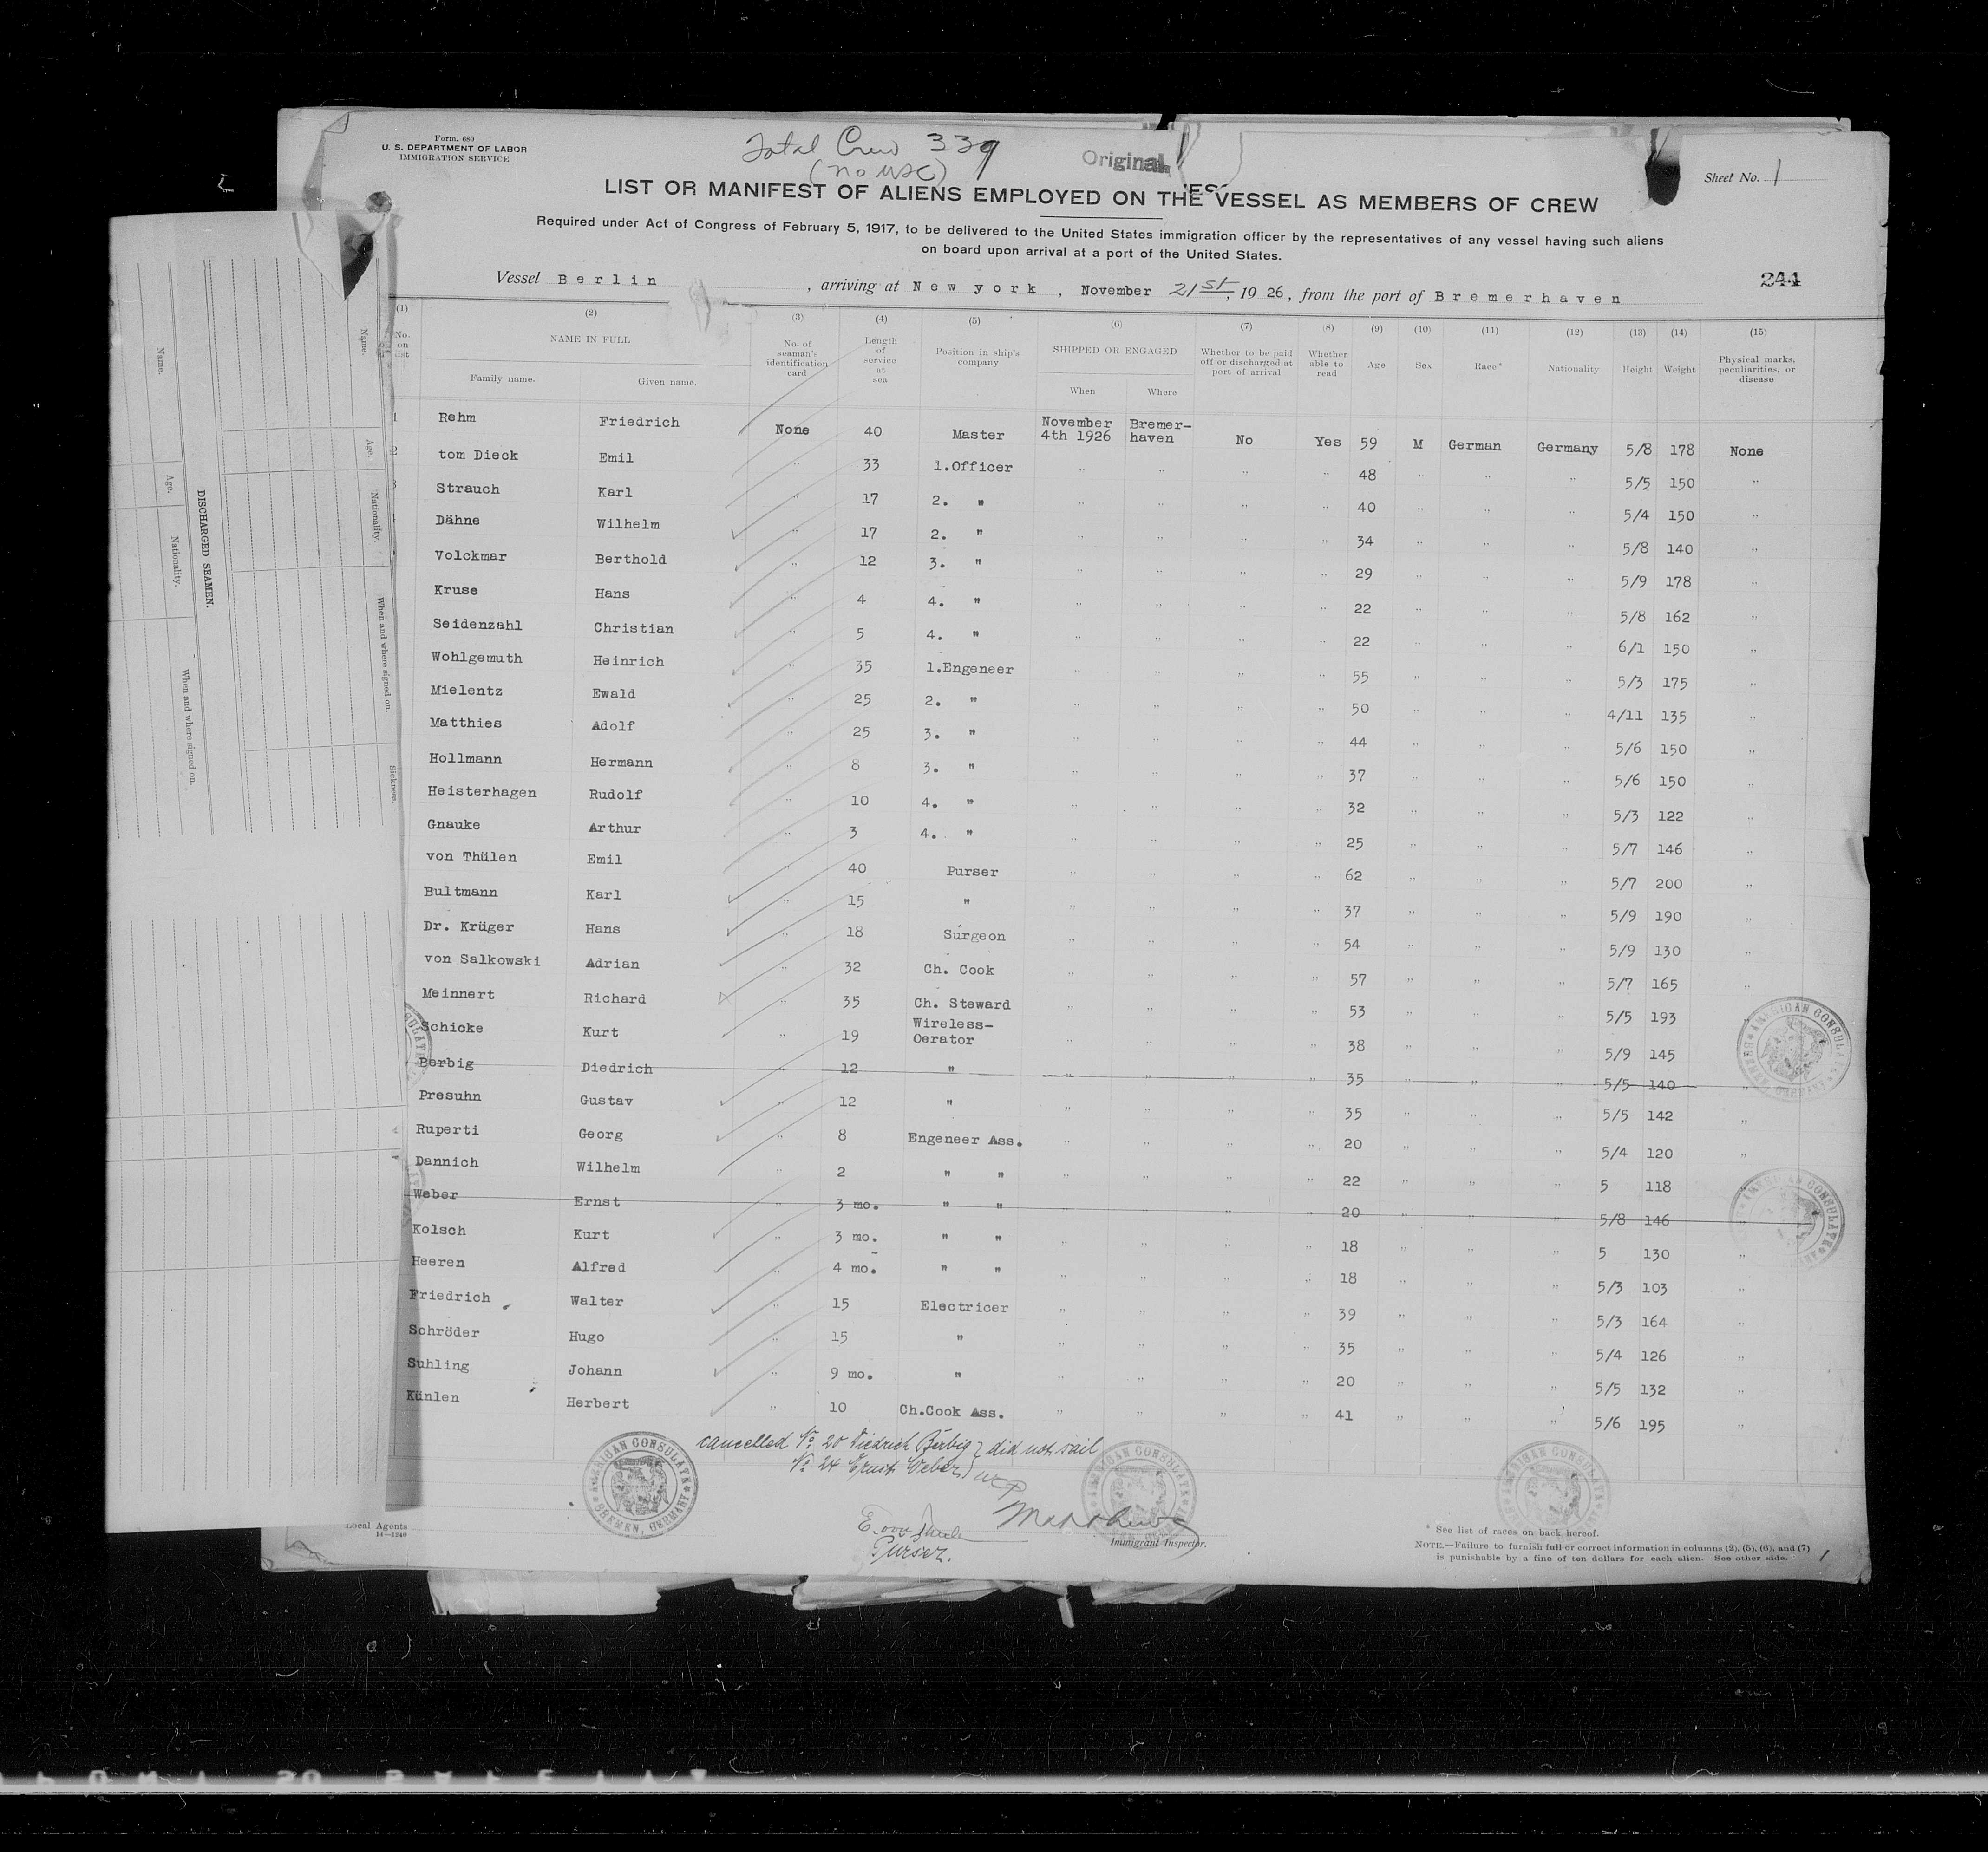 Form. 680
U. S. DEPARTMENT OF LABOR
IMMIGRATION SERVICE
Total Crew 339
(no USC)
Original
Sheet No. 1
LIST OR MANIFEST OF ALIENS EMPLOYED ON THE VESSEL AS MEMBERS OF CREW
Required under Act of Congress of February 5, 1917, to be delivered to the United States immigration officer by the representatives of any vessel having such aliens
on board upon arrival at a port of the United States.
244
Vessel Berlin, arriving at New york, November 21st, 1926, from the port of Bremerhaven
(1) (2) (3) (4) (5) (6) (7) (8) (9) (10) (11) (12) (13) (14) (15)
No. on list
NAME IN FULL
Family name. Given name.
No. of seaman's identification card
Length of service at sea
Position in ship's company
SHIPPED OR ENGAGED
When Where
Whether to be paid off or discharged at port of arrival
Whether able to read
Age
Sex
Race*
Nationality
Height
Weight
Physical marks, peculiarities, or disease
1 Rehm Friedrich None 40 Master November 4th 1926 Bremer-haven No Yes 59 M German Germany 5/8 178 None
2 tom Dieck Emil " 33 1.Officer " " " " 48 " " " 5/5 150 "
3 Strauch Karl " 17 2. " " " " " 40 " " " 5/4 150 "
Dähne Wilhelm " 17 2. " " " " " 34 " " " 5/8 140 "
Volckmar Berthold " 12 3. " " " " " 29 " " " 5/9 178 "
Kruse Hans " 4 4. " " " " " 22 " " " 5/8 162 "
Seidenzahl Christian " 5 4. " " " " " 22 " " " 6/1 150 "
Wohlgemuth Heinrich " 35 1.Engeneer " " " " 55 " " " 5/3 175 "
Mielentz Ewald " 25 2. " " " " " 50 " " " 4/11 135 "
Matthies Adolf " 25 3. " " " " " 44 " " " 5/6 150 "
Hollmann Hermann " 8 3. " " " " " 37 " " " 5/6 150 "
Heisterhagen Rudolf " 10 4. " " " " " 32 " " " 5/3 122 "
Gnauke Arthur " 3 4. " " " " " 25 " " " 5/7 146 "
von Thülen Emil " 40 Purser " " " " 62 " " " 5/7 200 "
Bultmann Karl " 15 " " " " " 37 " " " 5/9 190 "
Dr. Krüger Hans " 18 Surgeon " " " " 54 " " " 5/9 130 "
von Salkowski Adrian " 32 Ch. Cook " " " " 57 " " " 5/7 165 "
Meinnert Richard " 35 Ch. Steward " " " " 53 " " " 5/5 193
Schicke Kurt " 19 Wireless-Oerator " " " " 38 " " " 5/9 145
Berbig Diedrich 12 " " " " " 35 " " " 5/5 140 "
Presuhn Gustav " 12 " " " " " 35 " " " 5/5 142 "
Ruperti Georg " 8 Engeneer Ass. " " " " 20 " " " 5/4 120 "
Dannich Wilhelm " 2 " " " " " " 22 " " " 5 118
Weber Ernst " 3 mo. " " " " " " 20 " " " 5/8 146 "
Kolsch Kurt " 3 mo. " " " " " " 18 " " " 5 130 "
Heeren Alfred " 4 mo. " " " " " " 18 " " " 5/3 103 "
Friedrich Walter " 15 Electricer " " " " 39 " " " 5/3 164 "
Schröder Hugo " 15 " " " " " 35 " " " 5/4 126 "
Suhling Johann " 9 mo. " " " " " 20 " " " 5/5 132 "
Künlen Herbert " 10 Ch.Cook Ass. " " " " 41 " " " 5/6 195 "
cancelled No 20 Diedrich Berbig } did not sail
No 24 Ernst Weber }
AMERICAN CONSULATE
BREMEN, GERMANY
AMERICAN CONSULATE
AMERICAN CONSULATE
AMERICAN CONSULATE
BREMEN, GERMANY
AMERICAN CONSULATE
E. von Thülen
Purser.
Immigrant Inspector.
Local Agents
14—1240
* See list of races on back hereof.
NOTE.—Failure to furnish full or correct information in columns (2), (5), (6), and (7)
is punishable by a fine of ten dollars for each alien. See other side.
1
DISCHARGED SEAMEN.
Name. Age. Nationality. When and where signed on.
Name. Age. Nationality. When and where signed on. Sickness.